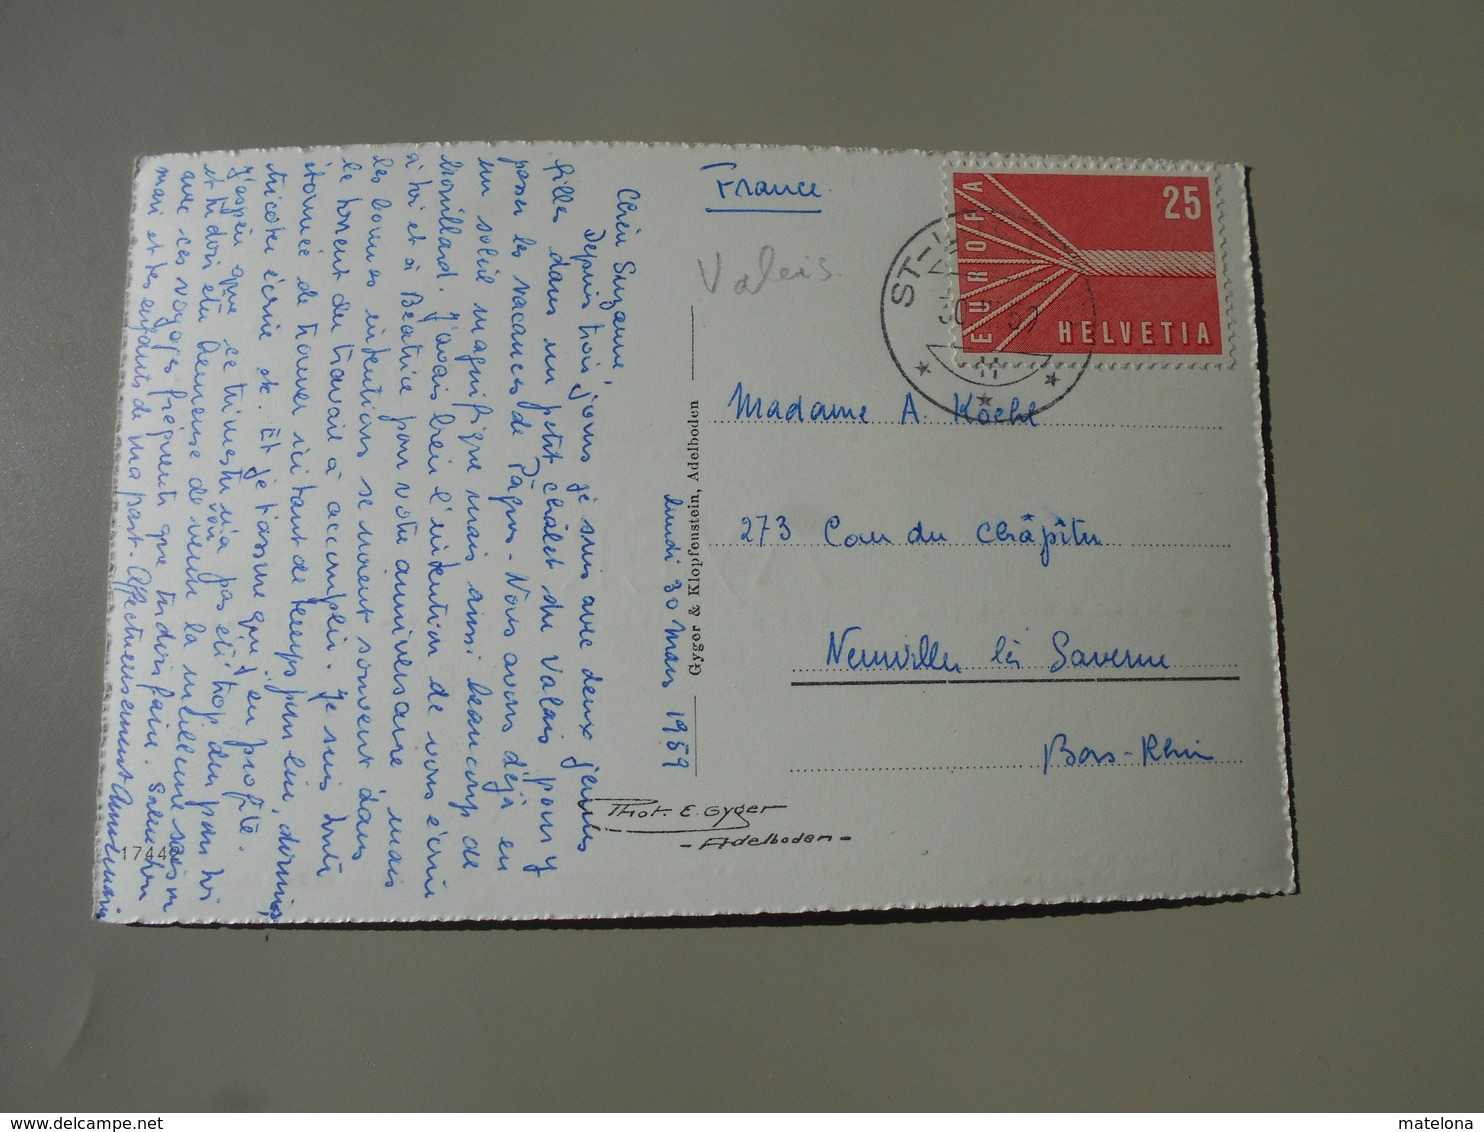 France
Valais.
EUROPA
25
HELVETIA
ST-
30
59
Madame A. Koehl
273 Cour du Châpître
Neuwiller lès Saverne
Bas-Rhin
Gyger & Klopfenstein, Adelboden
Phot. E. Gyger
- Adelboden -
17442
lundi 30 mars 1959
Chère Suzanne,
Depuis trois jours je suis avec deux jeunes
filles dans un petit châlet du Valais pour y
passer les vacances de Pâques - Nous avons déjà eu
un soleil magnifique mais aussi beaucoup de
brouillard. J'avais bien l'intention de vous écrire
à toi et à Béatrice pour votre anniversaire mais
les bonnes intentions se noient souvent dans
le torrent du travail à accomplir. Je suis toute
étonnée de trouver ici tant de temps pour lire, dormir,
tricoter écrire etc. Et je t'assure que j'en profite.
J'espère que ce trimestre n'a pas été trop dur pour toi
et tu dois être heureuse de voir venir la meilleure saison
avec ces voyages fréquents que tu dois faire. Salue ton
mari et tes enfants de ma part. Affectueusement